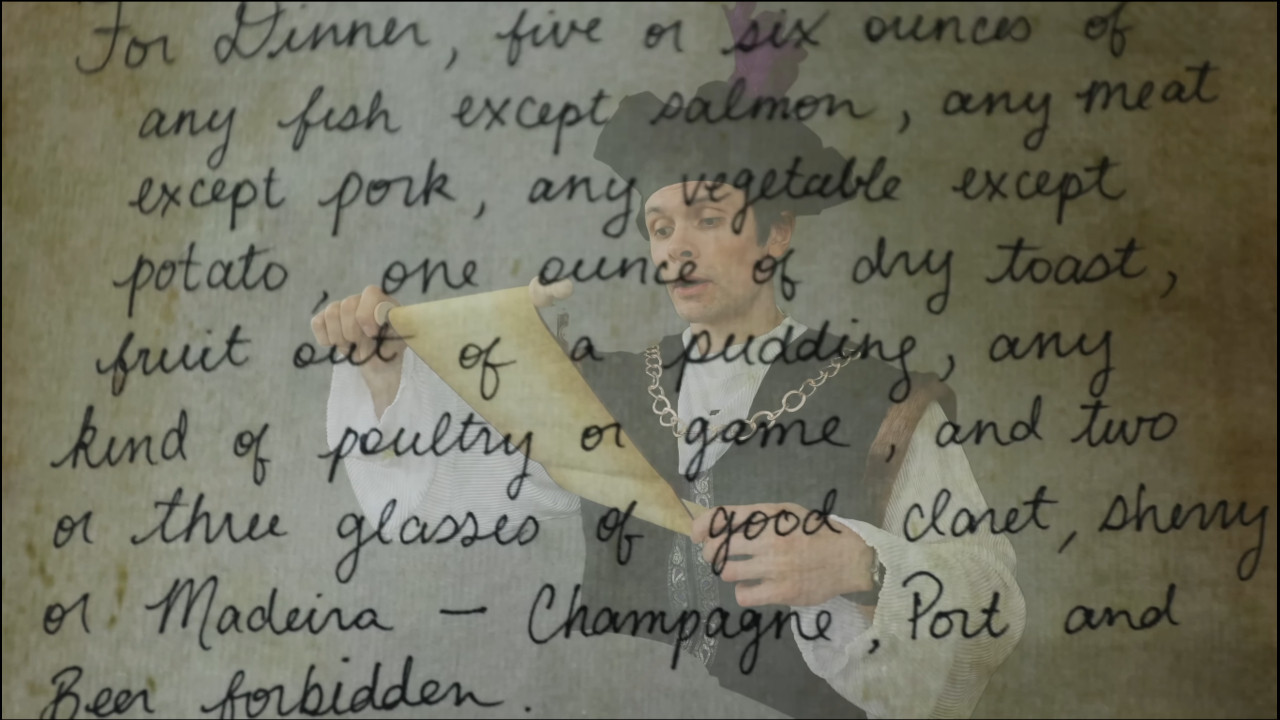 For Dinner, five or six ounces of
any fish except salmon, any meat
except pork, any vegetable except
potato, one ounce of dry toast,
fruit out of a pudding, any
kind of poultry or game, and two
or three glasses of good claret, sherry
or Madeira — Champagne, Port and
Beer forbidden.